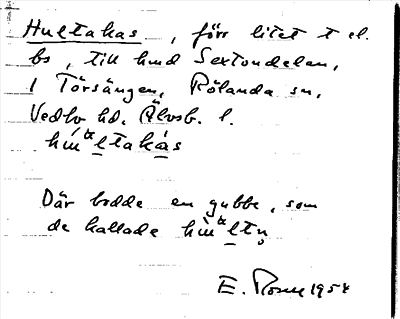 Hultakas, förr litet t el.
bs, till hmd Sextondelen,
i Törsängen, Rölanda sn,
Vedbo hd. Älvsb. l.
hùˣltakás
Där bodde en gubbe, som
de kallade hùˣltn̥
E. Rosell 1954